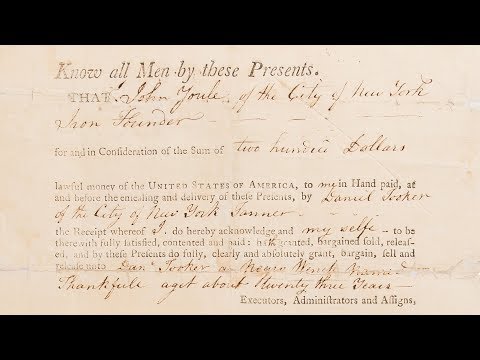 Know all Men by these Presents.
THAT I, John Youle, of the City of New York
Iron Founder
for and in Consideration of the Sum of two hundred Dollars
lawful money of the UNITED STATES OF AMERICA, to me in Hand paid, at
and before the ensealing and delivery of these Presents, by Daniel Tooker
of the City of New York Tanner
the Receipt whereof I do hereby acknowledge and my selfe to be
therewith fully satisfied, contented and paid: hath granted, bargained sold, releas-
ed, and by these Presents do fully, clearly and absolutely grant, bargain, sell and
release unto Danl Tooker a Negro Wench Named
Thankfull aget about twenty three Years
Executors, Administrators and Assigns,